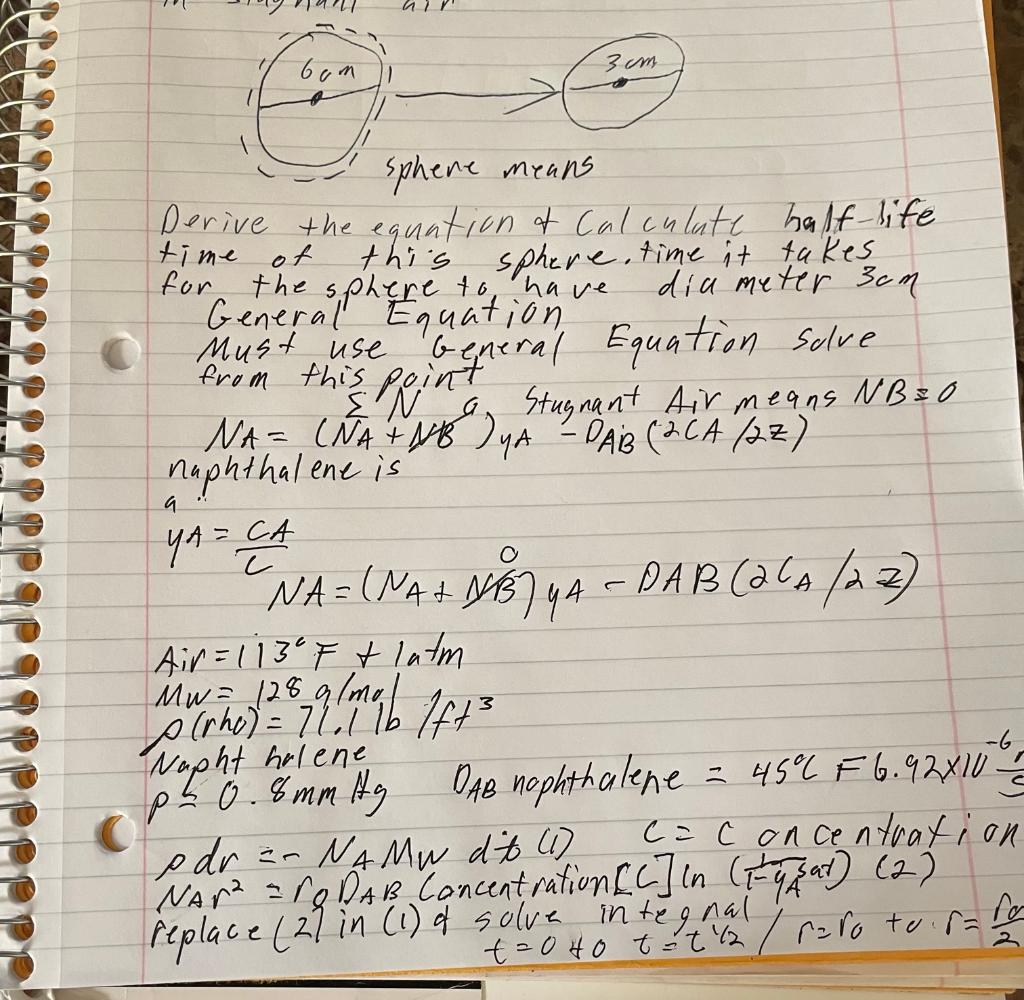 in stagnant air
6cm
3cm
sphere means
Derive the equation & Calculate half-life
time of this sphere. time it takes
for the sphere to have diameter 3cm
General Equation
Must use General Equation solve
from this point
ΣN 0, Stagnant Air means NB = 0
NA = (NA + NB) yA - DAB (2CA/2Z)
naphthalene is
a
yA = CA/C
0
NA = (NA + NB) yA - DAB (2CA/2Z)
Air = 113°F + 1atm
Mw = 128 g/mol
ρ(rho) = 71.1 lb/ft³
Napht halene
p = 0.8mm Hg DAB naphthalene = 45°C = 6.92x10⁻⁶
ρdr = - NA Mw dt (1) C = Concentration
NAr² = r0 DAB Concentration [C] ln (1/1-yA sat) (2)
replace (2) in (1) & solve integral
t=0 to t=t 1/2 / r=r0 to r=r0/2